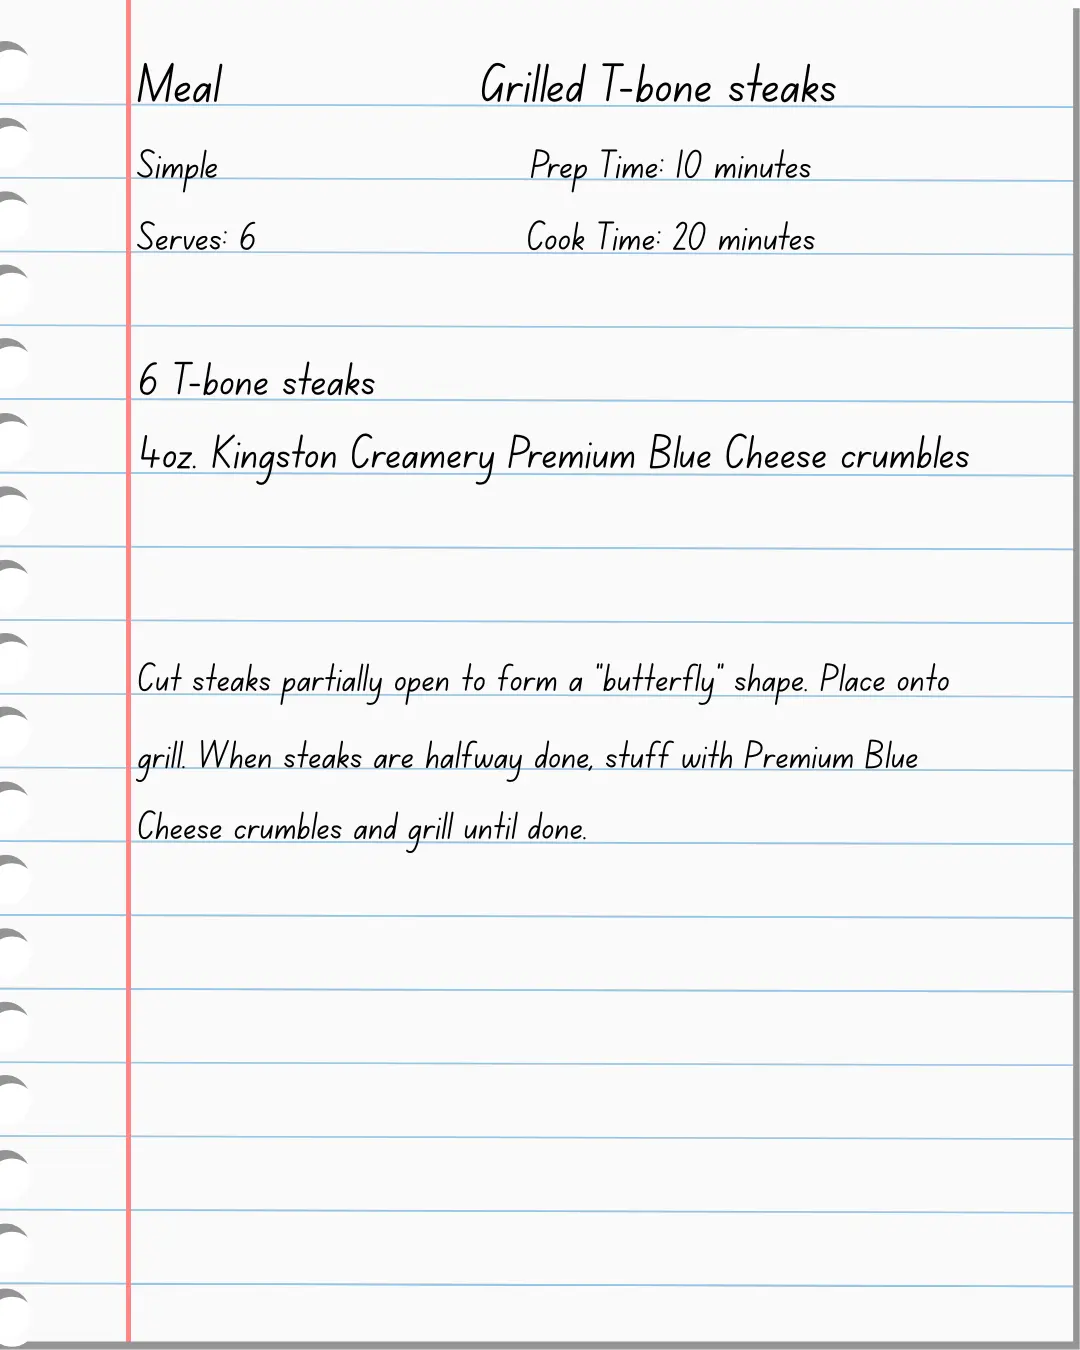 Meal Grilled T-bone steaks
Simple Prep Time: 10 minutes
Serves: 6 Cook Time: 20 minutes
6 T-bone steaks
4oz. Kingston Creamery Premium Blue Cheese crumbles
Cut steaks partially open to form a "butterfly" shape. Place onto
grill. When steaks are halfway done, stuff with Premium Blue
Cheese crumbles and grill until done.